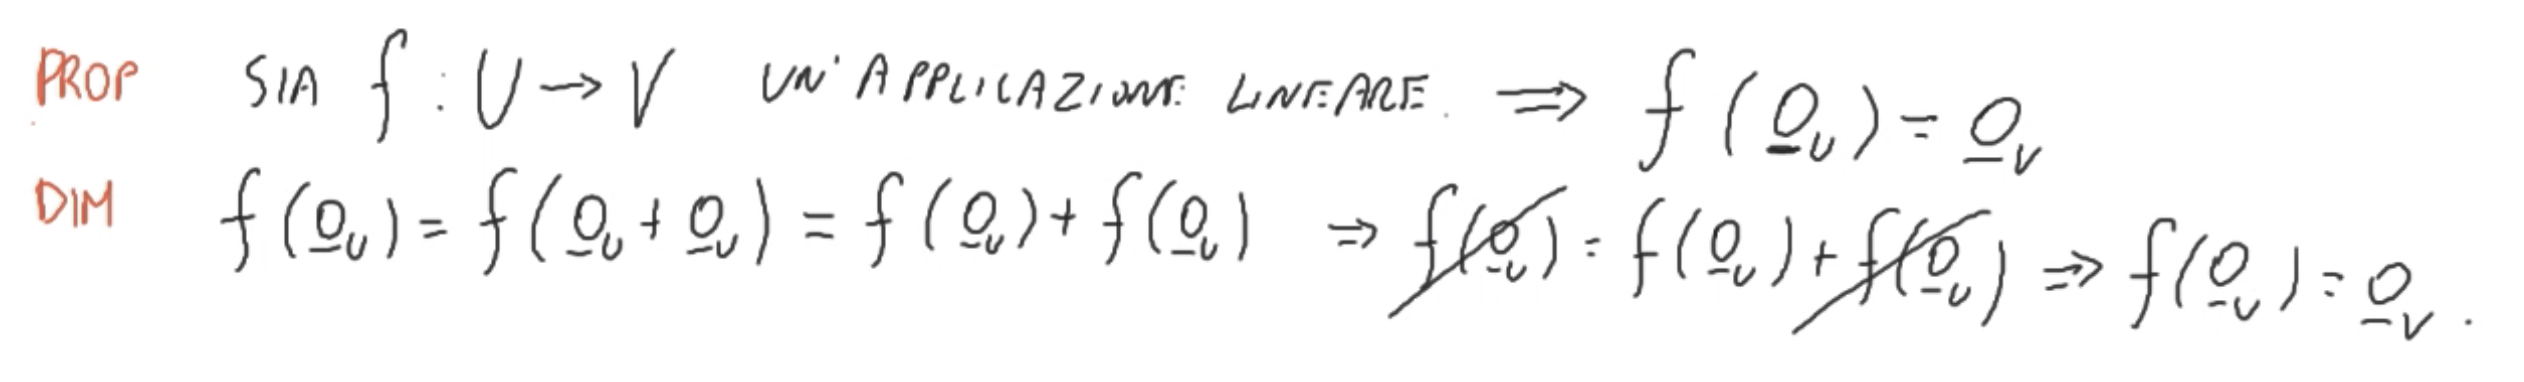 PROP SIA f : U → V UN'APPLICAZIONE LINEARE. ⇒ f(0_U) = 0_V
DIM f(0_U) = f(0_U + 0_U) = f(0_U) + f(0_U) ⇒ f(0_U) = f(0_U) + f(0_U) ⇒ f(0_U) = 0_V.